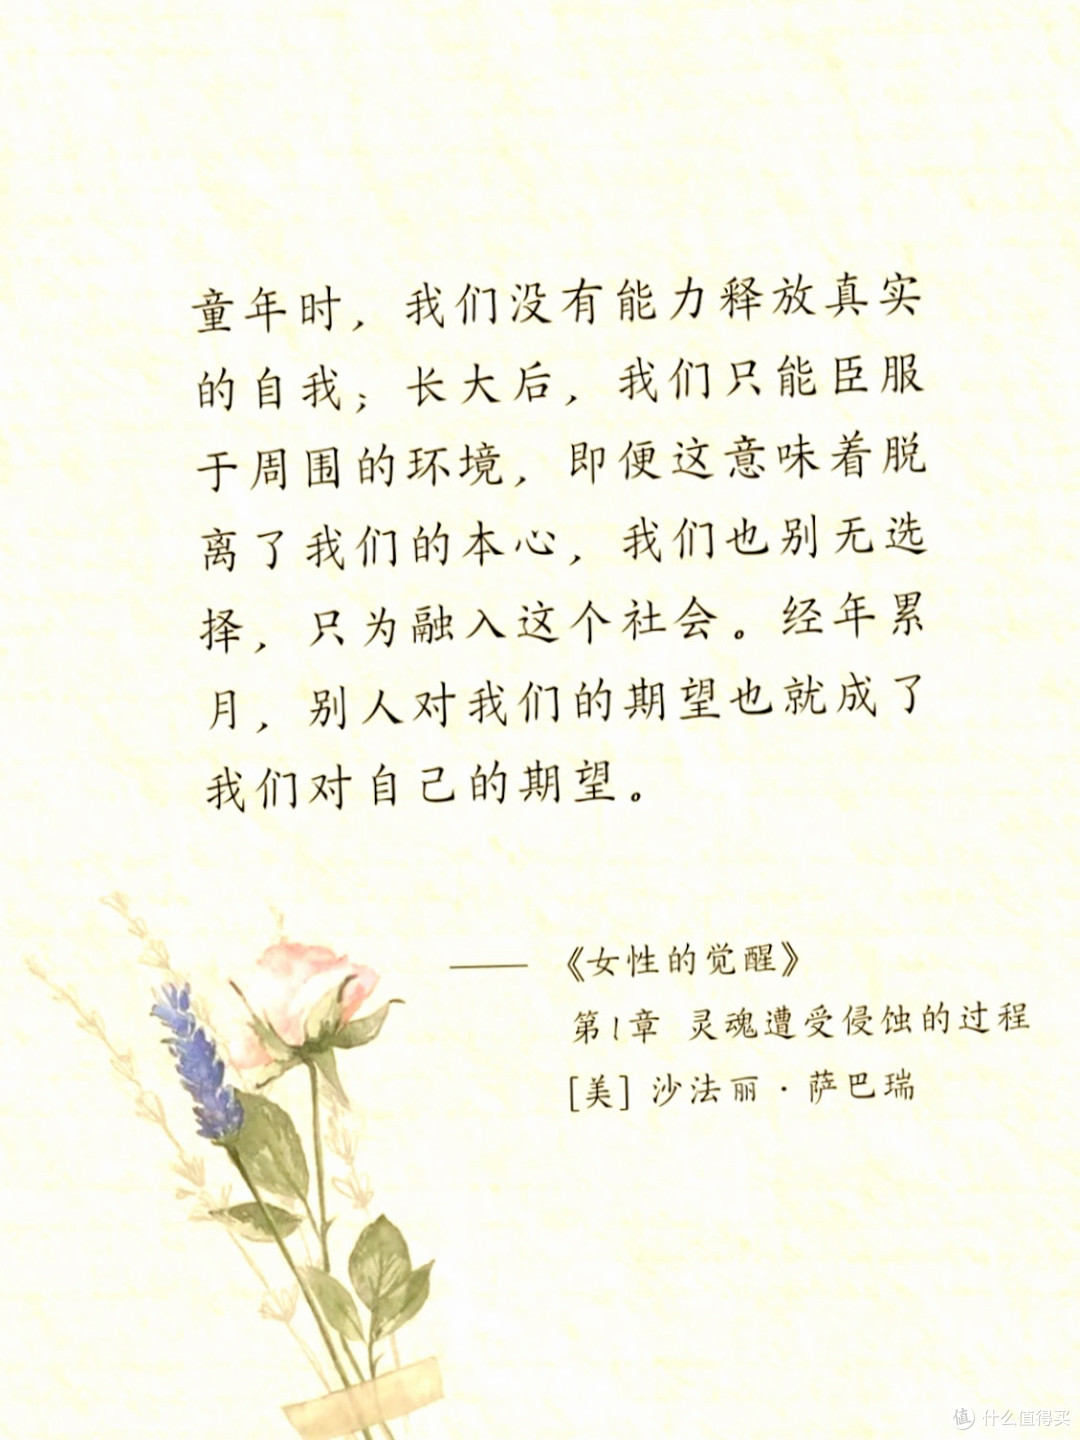 童年时，我们没有能力释放真实
的自我；长大后，我们只能臣服
于周围的环境，即便这意味着脱
离了我们的本心，我们也别无选
择，只为融入这个社会。经年累
月，别人对我们的期望也就成了
我们对自己的期望。
——《女性的觉醒》
第1章 灵魂遭受侵蚀的过程
[美] 沙法丽·萨巴瑞
值 什么值得买